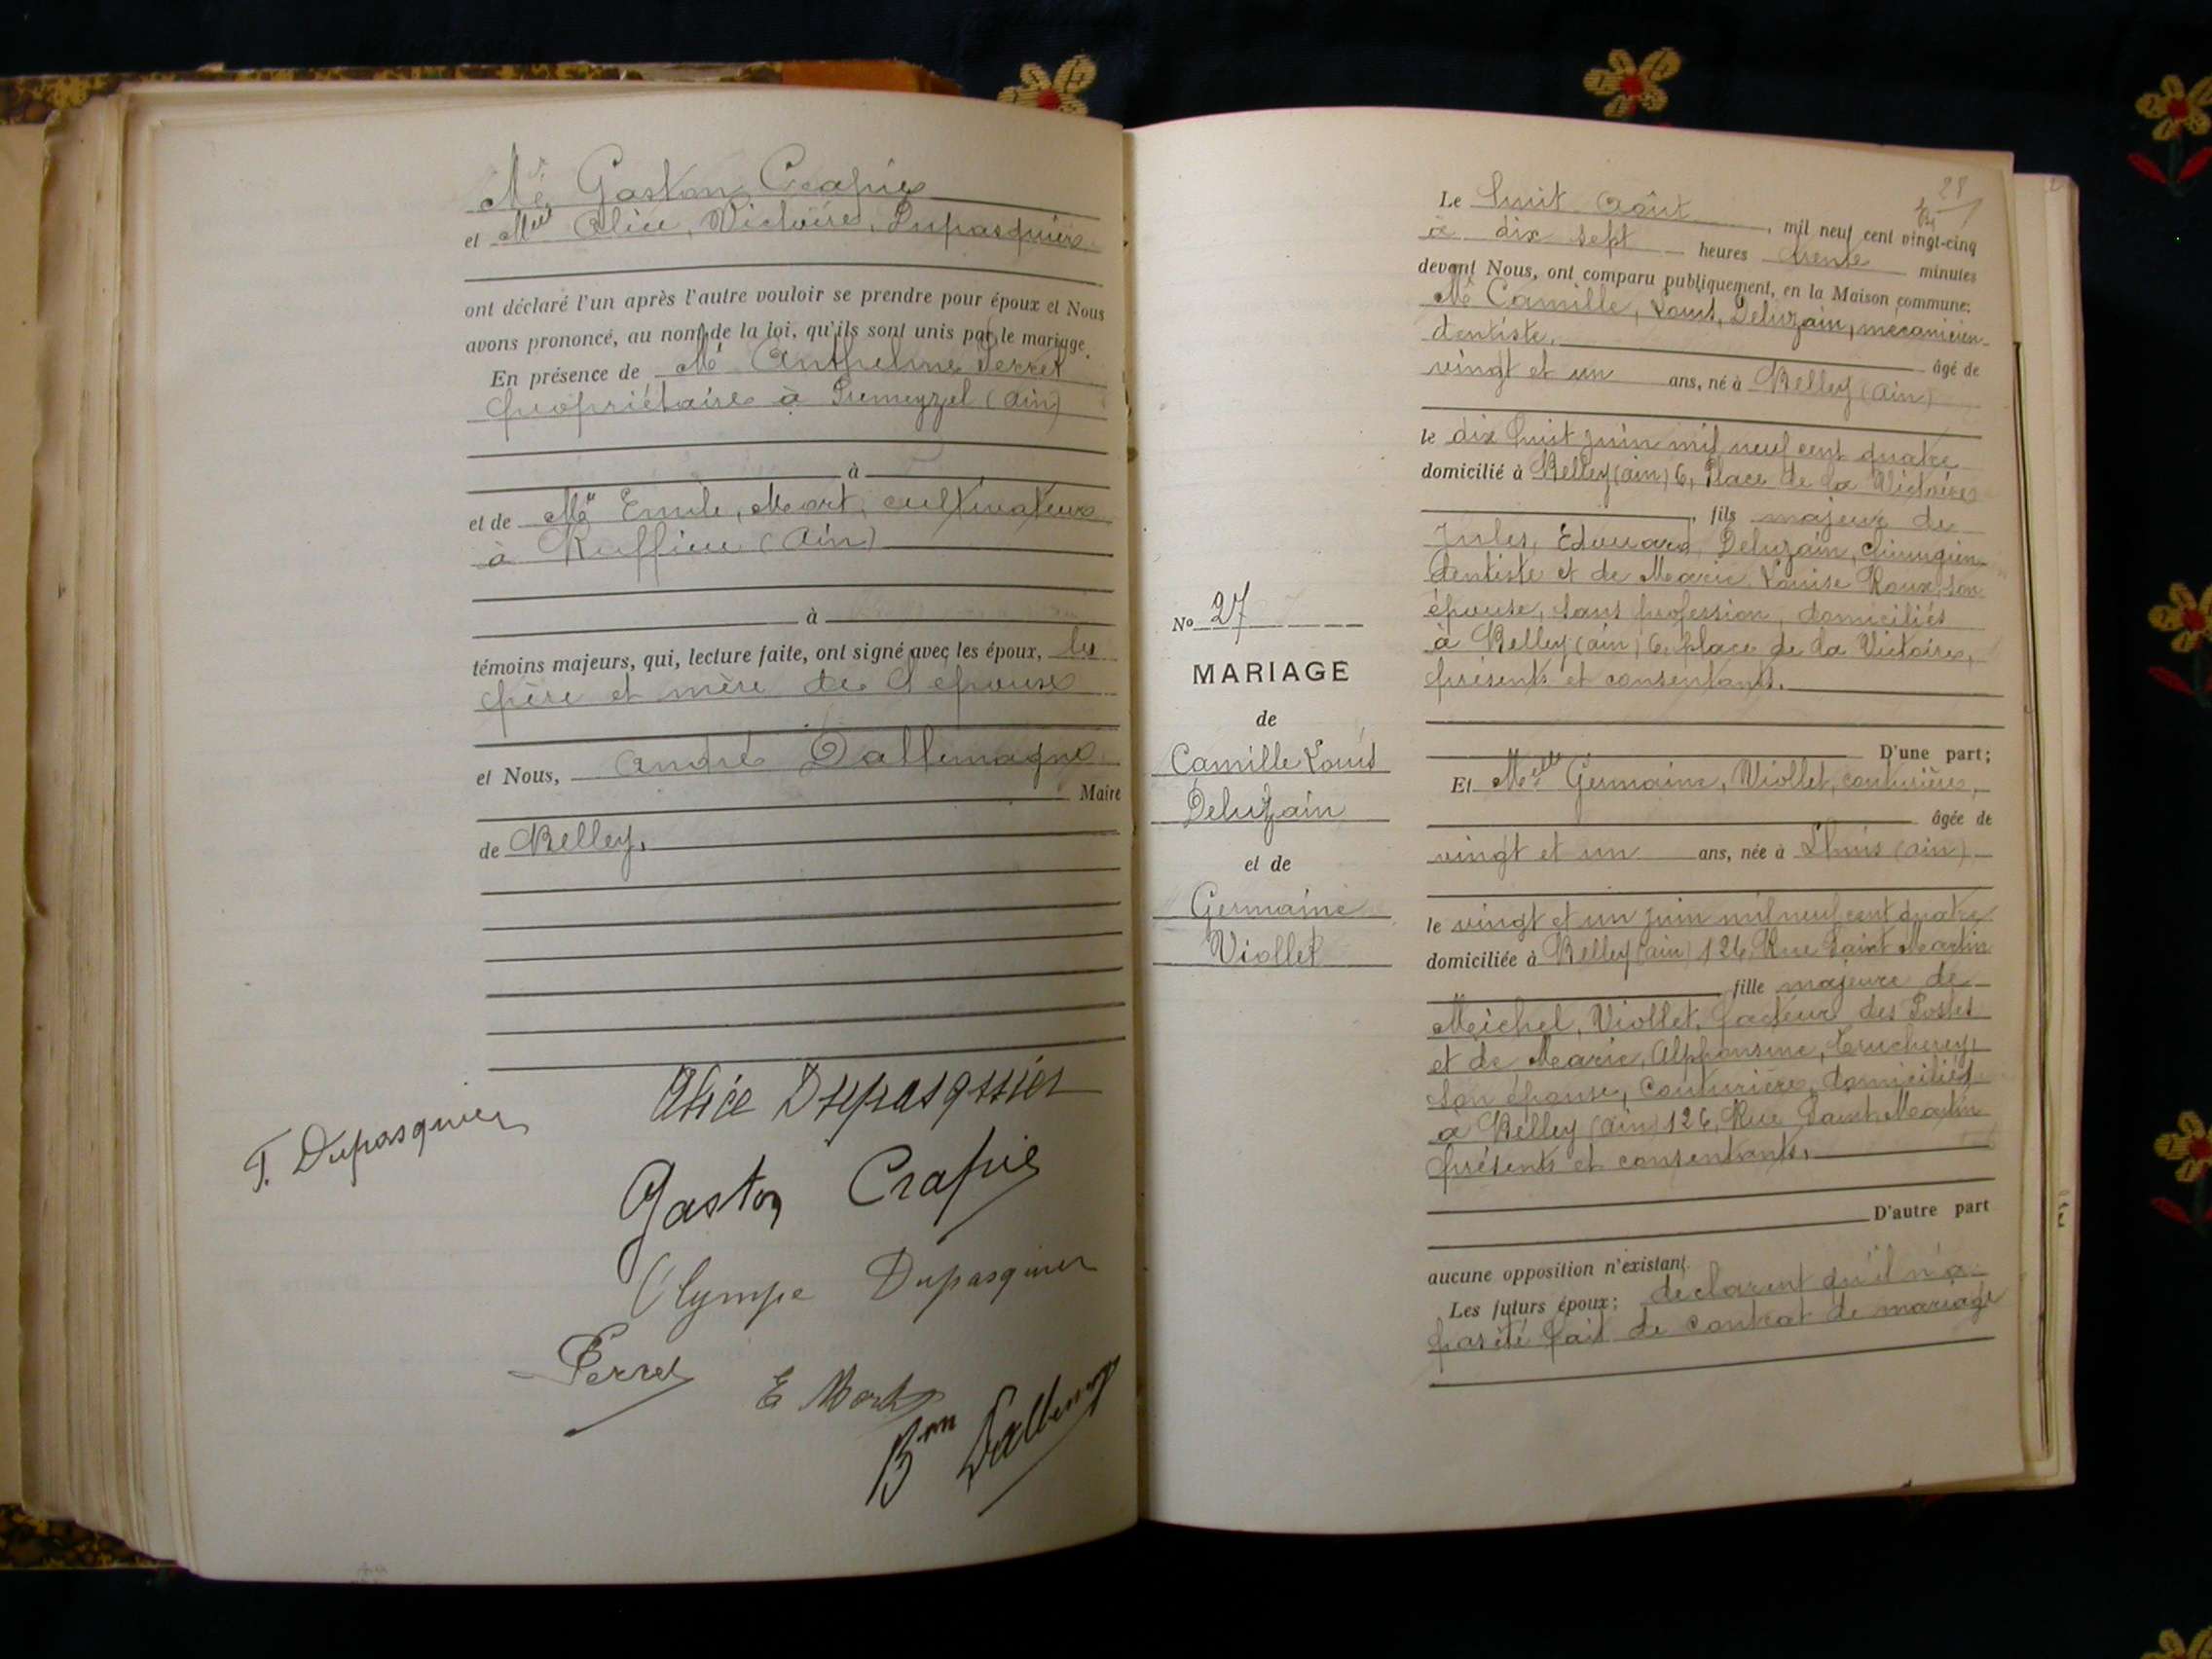 Mr Gaston Crapiz
et Melle Alice, Victoire, Dupasquier
ont déclaré l'un après l'autre vouloir se prendre pour époux et Nous
avons prononcé, au nom de la loi, qu'ils sont unis par le mariage.
En présence de Mr Anthelme Perret
propriétaire à Premeyzel (Ain)
à
et de Mr Emile, Mort, cultivateur
à Ruffieu (Ain)
à
témoins majeurs, qui, lecture faite, ont signé avec les époux, les
père et mère de l'épouse
et Nous, André Dallemagne
Maire
de Belley.
Alice Dupasquier
T. Dupasquier
Gaston
Olympe Dupasquier
Perret
E Mort
Bon Dallemagne
28
Le huit Août, mil neuf cent vingt-cinq
à dix sept heures trente minutes
devant Nous, ont comparu publiquement, en la Maison commune:
Mr Camille, Louis, Deluzain, mécanicien-
dentiste, âgé de
vingt et un ans, né à Belley (Ain)
le dix huit juin mil neuf cent quatre
domicilié à Belley (Ain) 6, Place de la Victoire
, fils majeur de
Jules, Edouard, Deluzain, chirurgien-
dentiste et de Marie Louise Roux, son
épouse, sans profession, domiciliés
à Belley (Ain) 6, place de la Victoire,
présents et consentants.
D'une part;
Et Melle Germaine, Viollet, couturière,
âgée de
vingt et un ans, née à Lhuis (Ain)
le vingt et un juin mil neuf cent quatre
domiciliée à Belley (Ain) 126, Rue Saint Martin
fille majeure de
Michel, Viollet, facteur des Postes
et de Marie, Alphonsine,
son épouse, couturière, domiciliés
à Belley (Ain) 126, Rue Saint Martin
présents et consentants.
D'autre part
aucune opposition n'existant.
Les futurs époux; déclarent qu'il n'a
pas été fait de contrat de mariage
No 27
MARIAGE
de
Camille Louis
Deluzain
et de
Germaine
Viollet